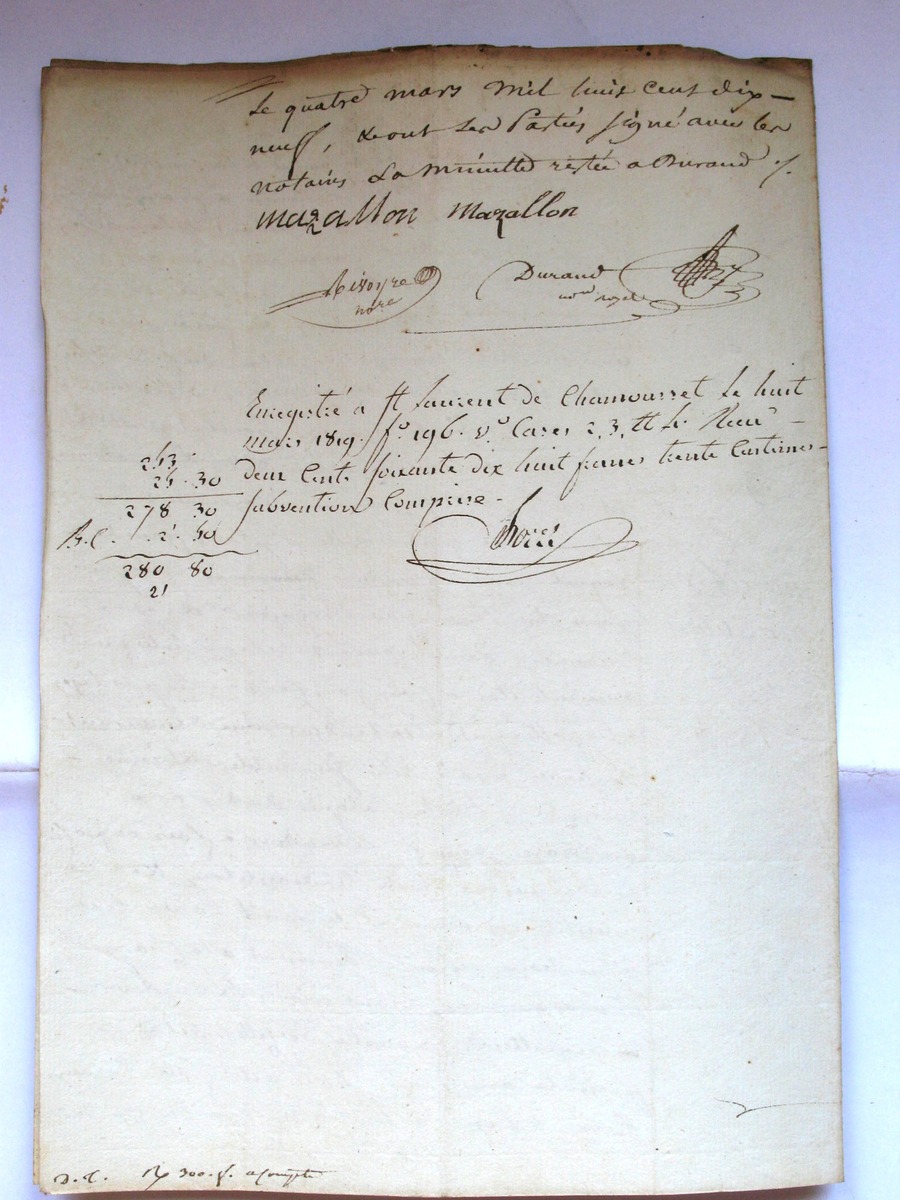 Le quatre mars mil huit cent dix-
neuf, & ont les Parties signé avec les
notaires La Minutte restée a Durand
Mazallon Mazallon
nore
Durand
nore royal
Enregistré a St Laurent de Chamousset Le huit
mars 1819. fo. 196. vo. Cases 2, 3, & Reçu
deux Cents Soixante dix huit francs trente Centimes
Subvention Comprise.
253
25. 30
278 30
2. 50
280 80
21
D.C. 300. f. acompte